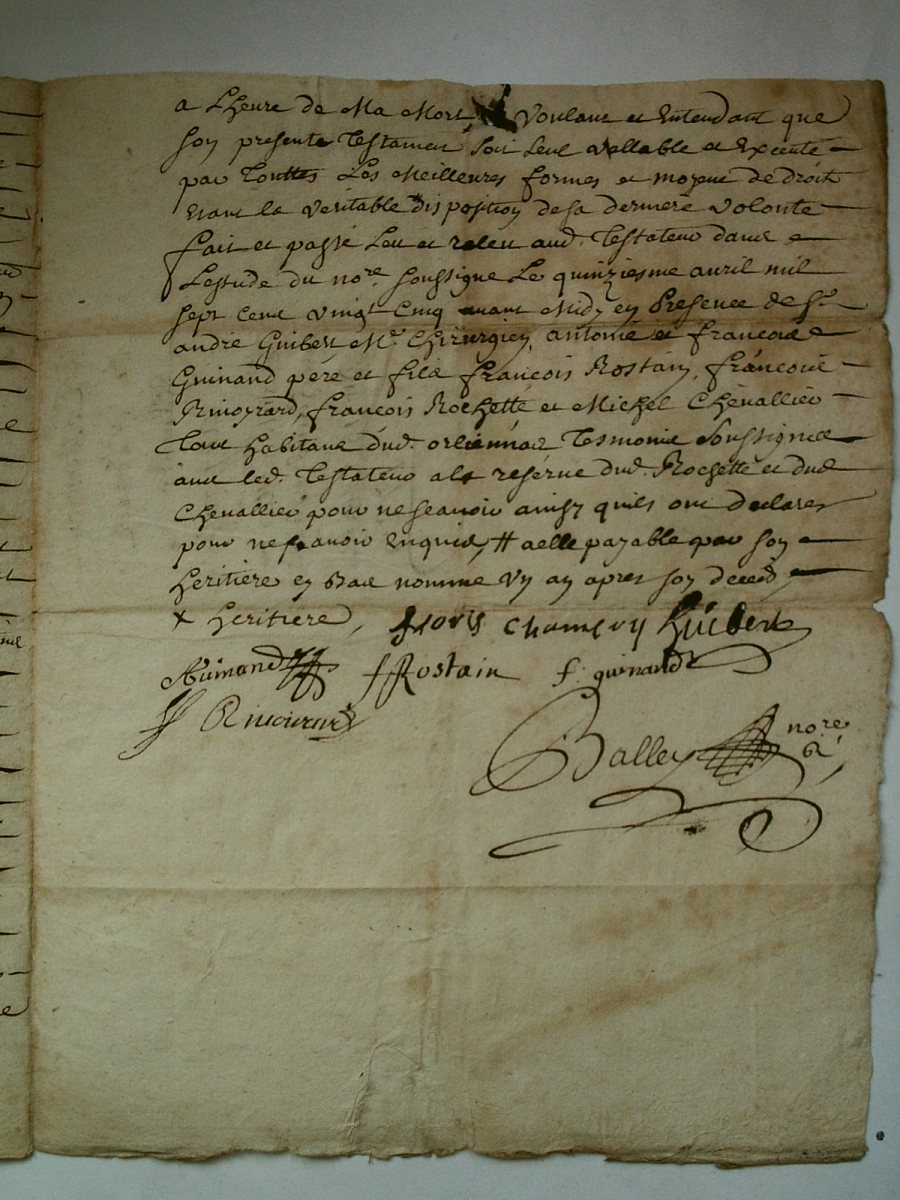 a Lheure de Ma Mort Voulant et Entendant que
son presente Testament soit Leul Vallable et Execute
par Touttes Les Meilleures formes et moyens de droit
Etant la Veritable disposition de sa derniere volonte
fait et passé Leu et releu aud. Testateur dans
Lestude du nore. soussigne Le quinziesme avril mil
sept Cens Vingt Cinq avant Midy en Presence de Sr.
andré Guibert Me. Chirurgien, antoine et francois
Guinand pere et fils francois Rostain, francois
Rinoyrard, francois Rochette et Michel Chevallier
Tous habitans dud. orliennas Tesmoins Soussignes
avec led. Testateur a la reserve dud. Rochette et dud
Chevallier pour ne scavoir ainsy quils ont declares
pour ne scavoir Enquis, # a elle payable par son
heritiere en bas nommé Un an apres son deceds
x heritiere, floris Champvy Guibert
AGuinand fRostain f. guinand
f Rinoirard
Balley nore
Rl